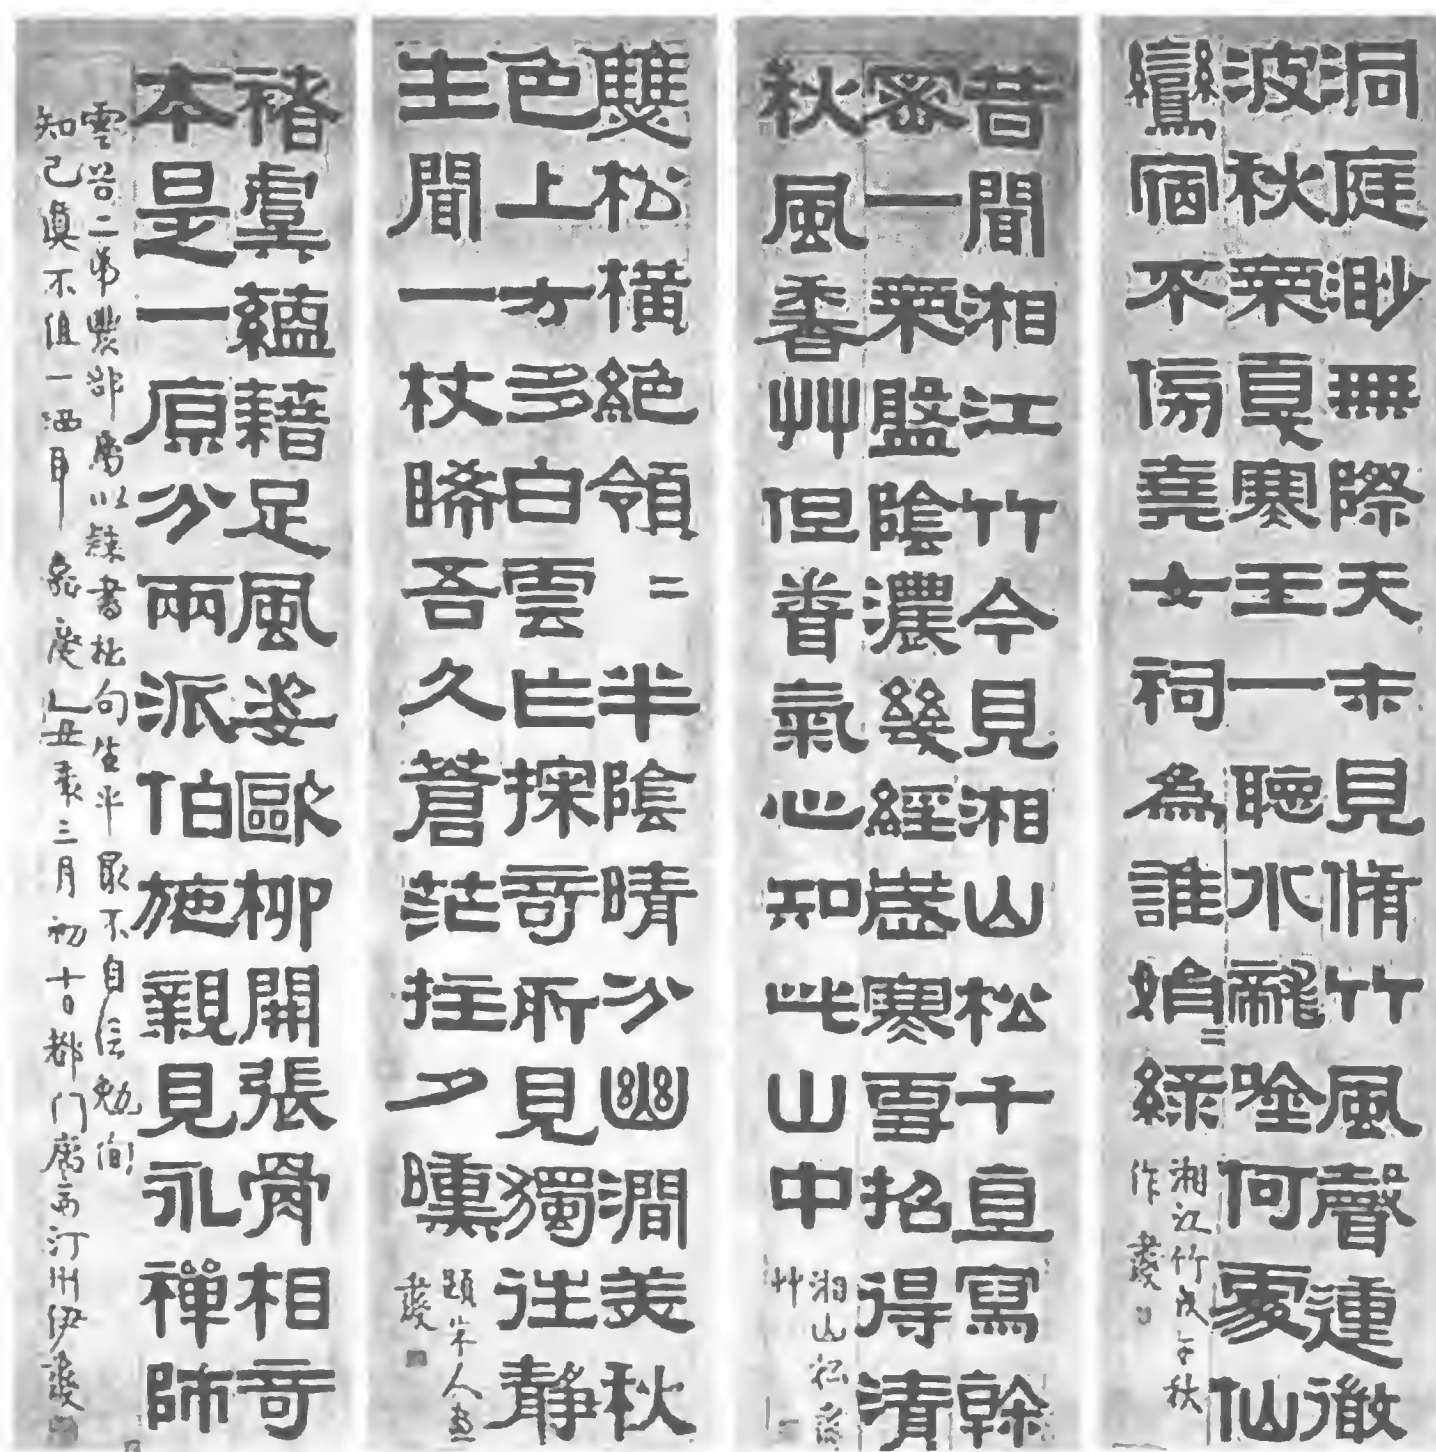 洞庭渺無際天末見脩竹風聲連徹
波秋氣戛寒玉一聽水龍唫何處仙
鸞宿不傍堯女祠為誰始二綠
湘江竹戊午秋
作
昔聞湘江竹今見湘山松千直寫幹
密一氣盤陰濃幾經歲寒雪招得清
秋風香艸但眷氣心知此山中
湘山松
艸
雙松橫絕領二半陰晴分幽澗美秋
色上方多白雲亡探奇所見獨往静
生聞一杖睎吾久蒼茫拄夕曛
題宋人畫
褚虞蘊藉足風姿歐柳開張骨相奇
本是一原分兩派伯施親見永禪師
雲谷二弟農部屬以隸書拙句生平最不自信勉徇
知己真不值一洒耳嘉慶乙丑三月初十日都门寓齋汀州伊秉綬